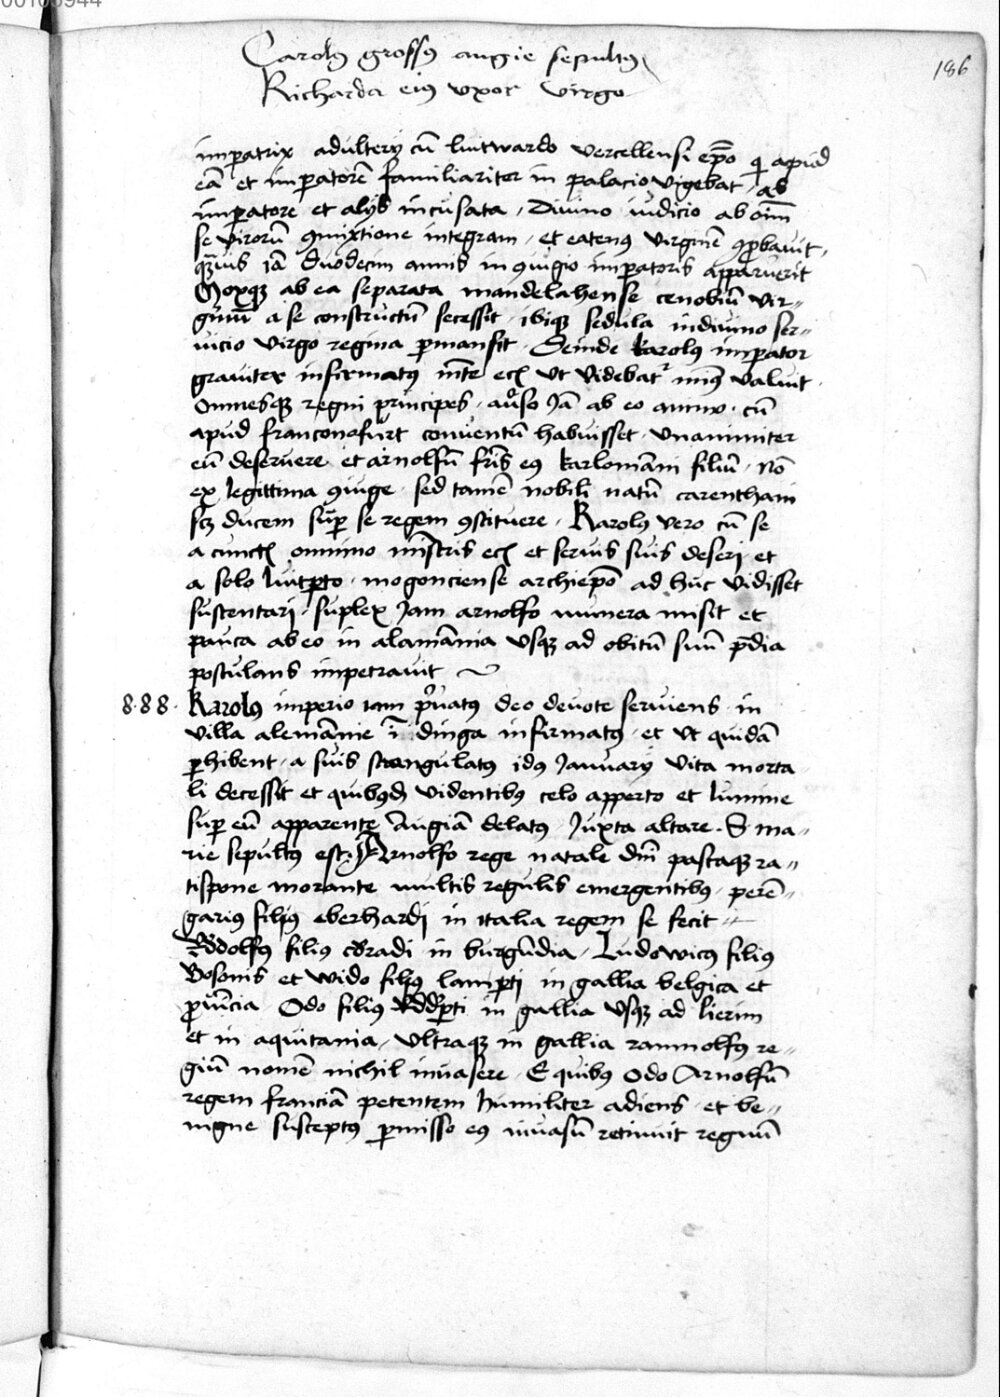 00106944
186
Carolꝰ grossꝰ augie sepultꝰ
Richarda eiꝰ vxor virgo
imꝑatrix adulterij cū luitwardo vercellensi ep̄o q̄ apud
eā et imꝑatorē familiariter in palacio vigebat, ab
imꝑatore et alijs incusata, Diuino iudicio ab oīm
se virorū ꝯmixtione integram, et eatenꝰ virginē ꝓbauit,
qᷓuis iā duodecim annis in ꝯiugio imꝑatoris apparuerit
Moxqꝫ ab ea separata mandelahense cenobiū vir-
ginū a se constructū secessit, ibiqꝫ sedula in diuino ser-
uicio virgo regina ꝑmansit. Deinde karolꝰ imperator
grauiter infirmatꝰ mēte ecī vt videbatᷣ minꝰ valuit.
Omnesqꝫ regni principes, auͦso iā ab eo animo, cū
apud franconofurt conuentū habuisset, vnanimiter
eū deseruere et arnolfū fr̄is eꝰ karlomānī filiū, nō
ex legittima ꝯiuge, sed tamē nobili natū carenthani
scꝫ ducem suꝑ se regem ꝯstituere, Karolꝰ vero cū se
a cunctꝭ omnino mīstris ecī et seruis suis deseri et
a solo luitꝑto mogonciense archiep̄o ad huc vidisset
sustentari, suplex iam arnolfo munera misit et
pauca ab eo in alamānia vsqꝫ ad obitū suū p̄dia
postulans impetrauit
888. Karolꝰ imperio iam pͥuatꝰ deo deuote seruiens in
villa alemānie ī dinga infirmatꝰ, et vt quidā
ꝑhibent, a suis strangulatꝰ idꝰ Januarij vita morta-
li decessit et quibꝰdā videntibꝰ celo apperto et lumine
super eū apparente Augiā delatꝰ, Juxta altare S ma-
rie sepultꝰ est. Arnolfo rege natale dn̄i pascaqꝫ ra-
tispone morante multis regulis emergentibꝰ, perē-
garius filiꝰ eberhardi in italia regem se fecit
Rudolfꝰ filius cōradi in burgūdia, Ludowicꝰ filius
Bosonis et wido filiꝰ lamꝑti in gallia belgica et
ꝓuīcia Odo filius Rodꝑti in gallia vsqꝫ ad lierim
et in aquitania, vltraqꝫ in gallia ramnolfꝰ re-
giū nomē nichil inuasere. E quibꝰ Odo Arnolfū
regem franciā petentem humiliter adiens, et be-
nigne susceptꝰ ꝑmisso eꝰ inuasū retinuit regnū